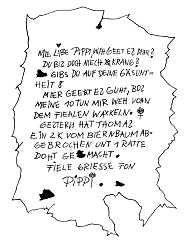 MEINE LIBE PIPPI, WIH GEET EZ DIHR?
DU BIZ DOCH NICH KRANG?
GIBS DU AUF DEINE GÄSUNT=
HEIT 8
MIER GEEST EZ GUHT, BOZ
MEINE 10 TUN MIR WEH VOAN
DEM FIEHLEN WAKKELN.
GEZTERN HAT THOMAZ
EIN ZK VOM BIERNBAUM AB=
GEBROCHEN UNT 1 RATTE
DOHT GEMACHT.
FIELE GRIESSE FON
PIPPI